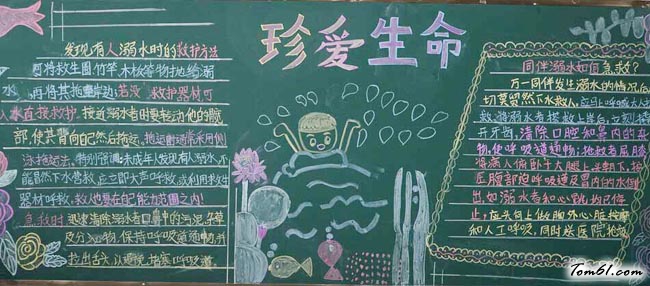 珍爱生命
发现有人溺水时的救护方法
可将救生圈、竹竿、木板等物抛给溺
水 再将其拖至岸边;若没 救护器材,可
入水直接救护。接近溺水者时要转动他的髋
部,使其背向自己然后拖运。拖运时通常采用侧
泳拖运法。特别强调:未成年人发现有人溺水,不
能冒然下水营救,应立即大声呼救,或利用救生
器材呼救,救人也要在自己能力范围之内!
急救时 迅速清除溺水者口鼻中的污泥、杂草
及分泌物,保持呼吸道通畅,并
拉出舌头,以避免 堵塞呼吸道.
同伴溺水如何急救?
万一同伴发生溺水的情况后,
切莫贸然下水救人,应马上呼喊大人
救 溺水者搭救上岸后,立刻撬
开牙齿,清除口腔和鼻内的杂
物,使呼吸道通畅;抢救者屈膝,
将病人俯卧于大腿上,头朝下,按
压腹部迫呼吸道及胃内的水倒
出。如溺水者和心跳均已停
止,应马上做胸外心脏按摩
和人工呼吸,同时送医院抢救
Tom61.com